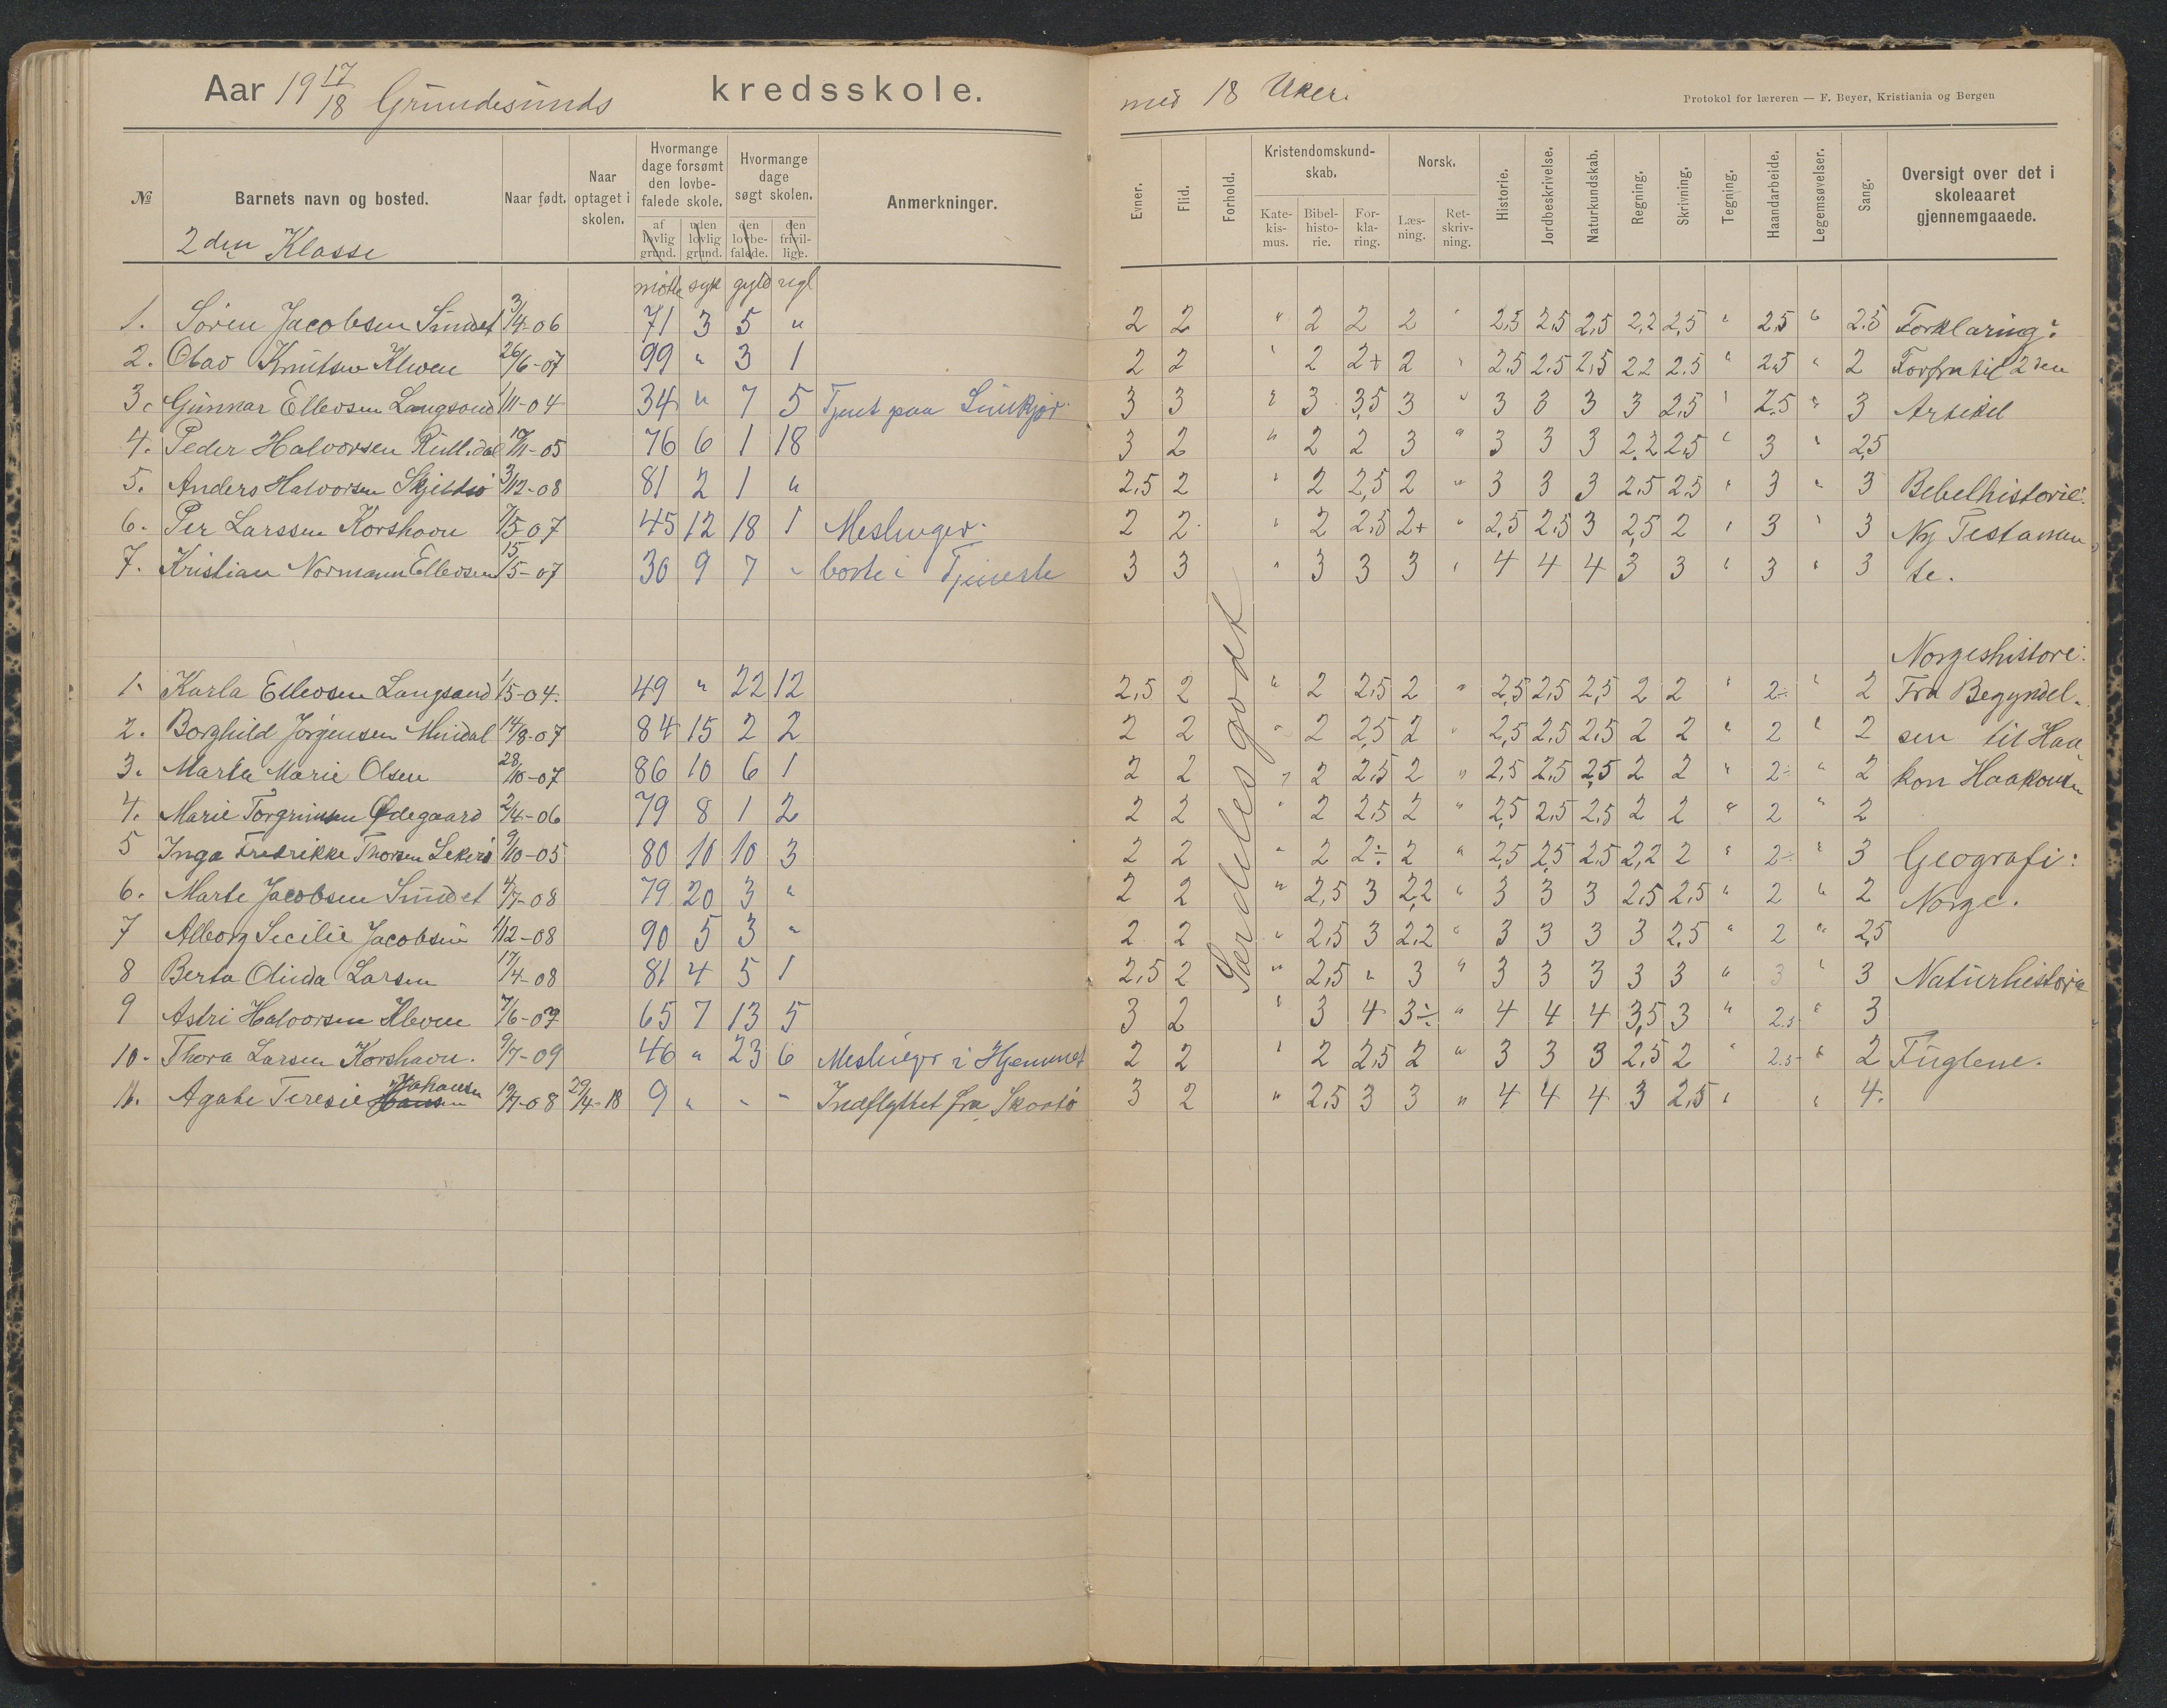 Aar 19 17/18 Grundesunds kredsskole.
med 18 Uker.
Protokol for læreren — F. Beyer, Kristiania og Bergen
№ Barnets navn og bosted. Naar født. Naar optaget i skolen. Hvormange dage forsømt den lovbefalede skole. af lovlig grund. uden lovlig grund. Hvormange dage søgt skolen. den lovbefalede. den frivillige. Anmerkninger.
Evner. Flid. Forhold. Kristendomskundskab. Katekismus. Bibelhistorie. Forklaring. Norsk. Læsning. Retskrivning. Historie. Jordbeskrivelse. Naturkundskab. Regning. Skrivning. Tegning. Haandarbeide. Legemsøvelser. Sang. Oversigt over det i skoleaaret gjennemgaaede.
2den Klasse
møtte syk gyld regl
1. Søren Jacobsen 3/4-06 71 3 5 " 2 2 " 2 2 2 " 2,5 2,5 2,5 2,2 2,5 " 2,5 " 2.5 Forklaring:
2. Olav Knutsen Kleven 26/6-07 99 " 3 1 2 2 " 2 2+ 2 " 2.5 2.5 2,5 2.2 2.5 " 2,5 " 2 til 2den
3. Gunnar Ellevsen Langsand 1/11-04 34 " 7 5 Tjent paa 3 3 " 3 3,5 3 " 3 3 3 3 2,5 " 2,5 " 3 Artikel
4. Peder Halvorsen 76 6 1 18 3 2 " 2 2 3 " 3 3 3 2.2 2,5 " 3 " 2,5
5. Anders Halvorsen 3/12-08 81 2 1 " 2,5 2 " 2 2,5 2 " 3 3 3 2.5 2.5 " 3 " 3 Bebelhistorie:
6. Per Larssen Korshavn 7/5-07 45 12 18 1 Meslinger. 2 2 " 2 2.5 2+ " 2,5 2,5 3 2,5 2 " 3 " 3 Ny Testamen
7. Kristian Normann Ellevsen 15/5-07 30 9 7 " borte i Tjeneste 3 3 " 3 3 3 " 4 4 4 3 3 " 3 " 3 te.
Særdeles godt
Norgeshistore:
1. Karla Ellevsen Langsand 1/5-04. 49 " 22 12 2,5 2 " 2 2.5 2 " 2,5 2,5 2,5 2 2 " 2÷ " 2 Fra Begyndel-
2. Borghild Jørgensen 14/8-07 84 15 2 2 2 2 " 2 2,5 2 " 2,5 2.5 2.5 2 2 " 2 " 2 sen til Haa
3. Marta Marie Olsen 28/10-07 86 10 6 1 2 2 " 2 2.5 2 " 2,5 2,5 2,5 2 2 " 2÷ " 2 kon Haakonsen
4. Marie Torgrimsen Ødegaard 2/4-06 79 8 1 2 2 2 " 2 2.5 2 " 2,5 2.5 2.5 2 2 " 2 " 2
5 Inga Fredrikke Thorsen 9/10-05 80 10 10 3 2 2 " 2 2÷ 2 " 2,5 2,5 2.5 2,2 2 " 2÷ " 3 Geografi:
6. Marte Jacobsen 4/7-08 79 20 3 " 2 2 " 2,5 3 2,2 " 3 3 3 2.5 2,5 " 2 " 2 Norge.
7 Alborg Secilie Jacobsen 1/12-08 90 5 3 " 2 2 " 2,5 3 2,2 " 3 3 3 3 2,5 " 2 " 2,5
8 Berta Olida Larsen 17/4-08 81 4 5 1 2,5 2 " 2,5 " 3 " 3 3 3 3 3 " 3 " 3 Naturhistorie
9 Astri Halvorsen Kleven 7/6-07 65 7 13 5 3 2 " 3 4 3÷ " 4 4 4 3,5 3 " 2.5 " 3
10. Thora Larsen Korshavn. 9/7-09 46 " 23 6 Meslinger i Hjemmet 2 2 " 2 2,5 2 " 3 3 3 2,5 2 " 2.5 " 2 Fuglene.
11. Agate Teresie Hansen Johansen 19/7-08 29/4-18 9 " - - Indflyttet fra Skaatø 3 2 " 2,5 3 3 " 4 4 4 3 2,5 " " 4.